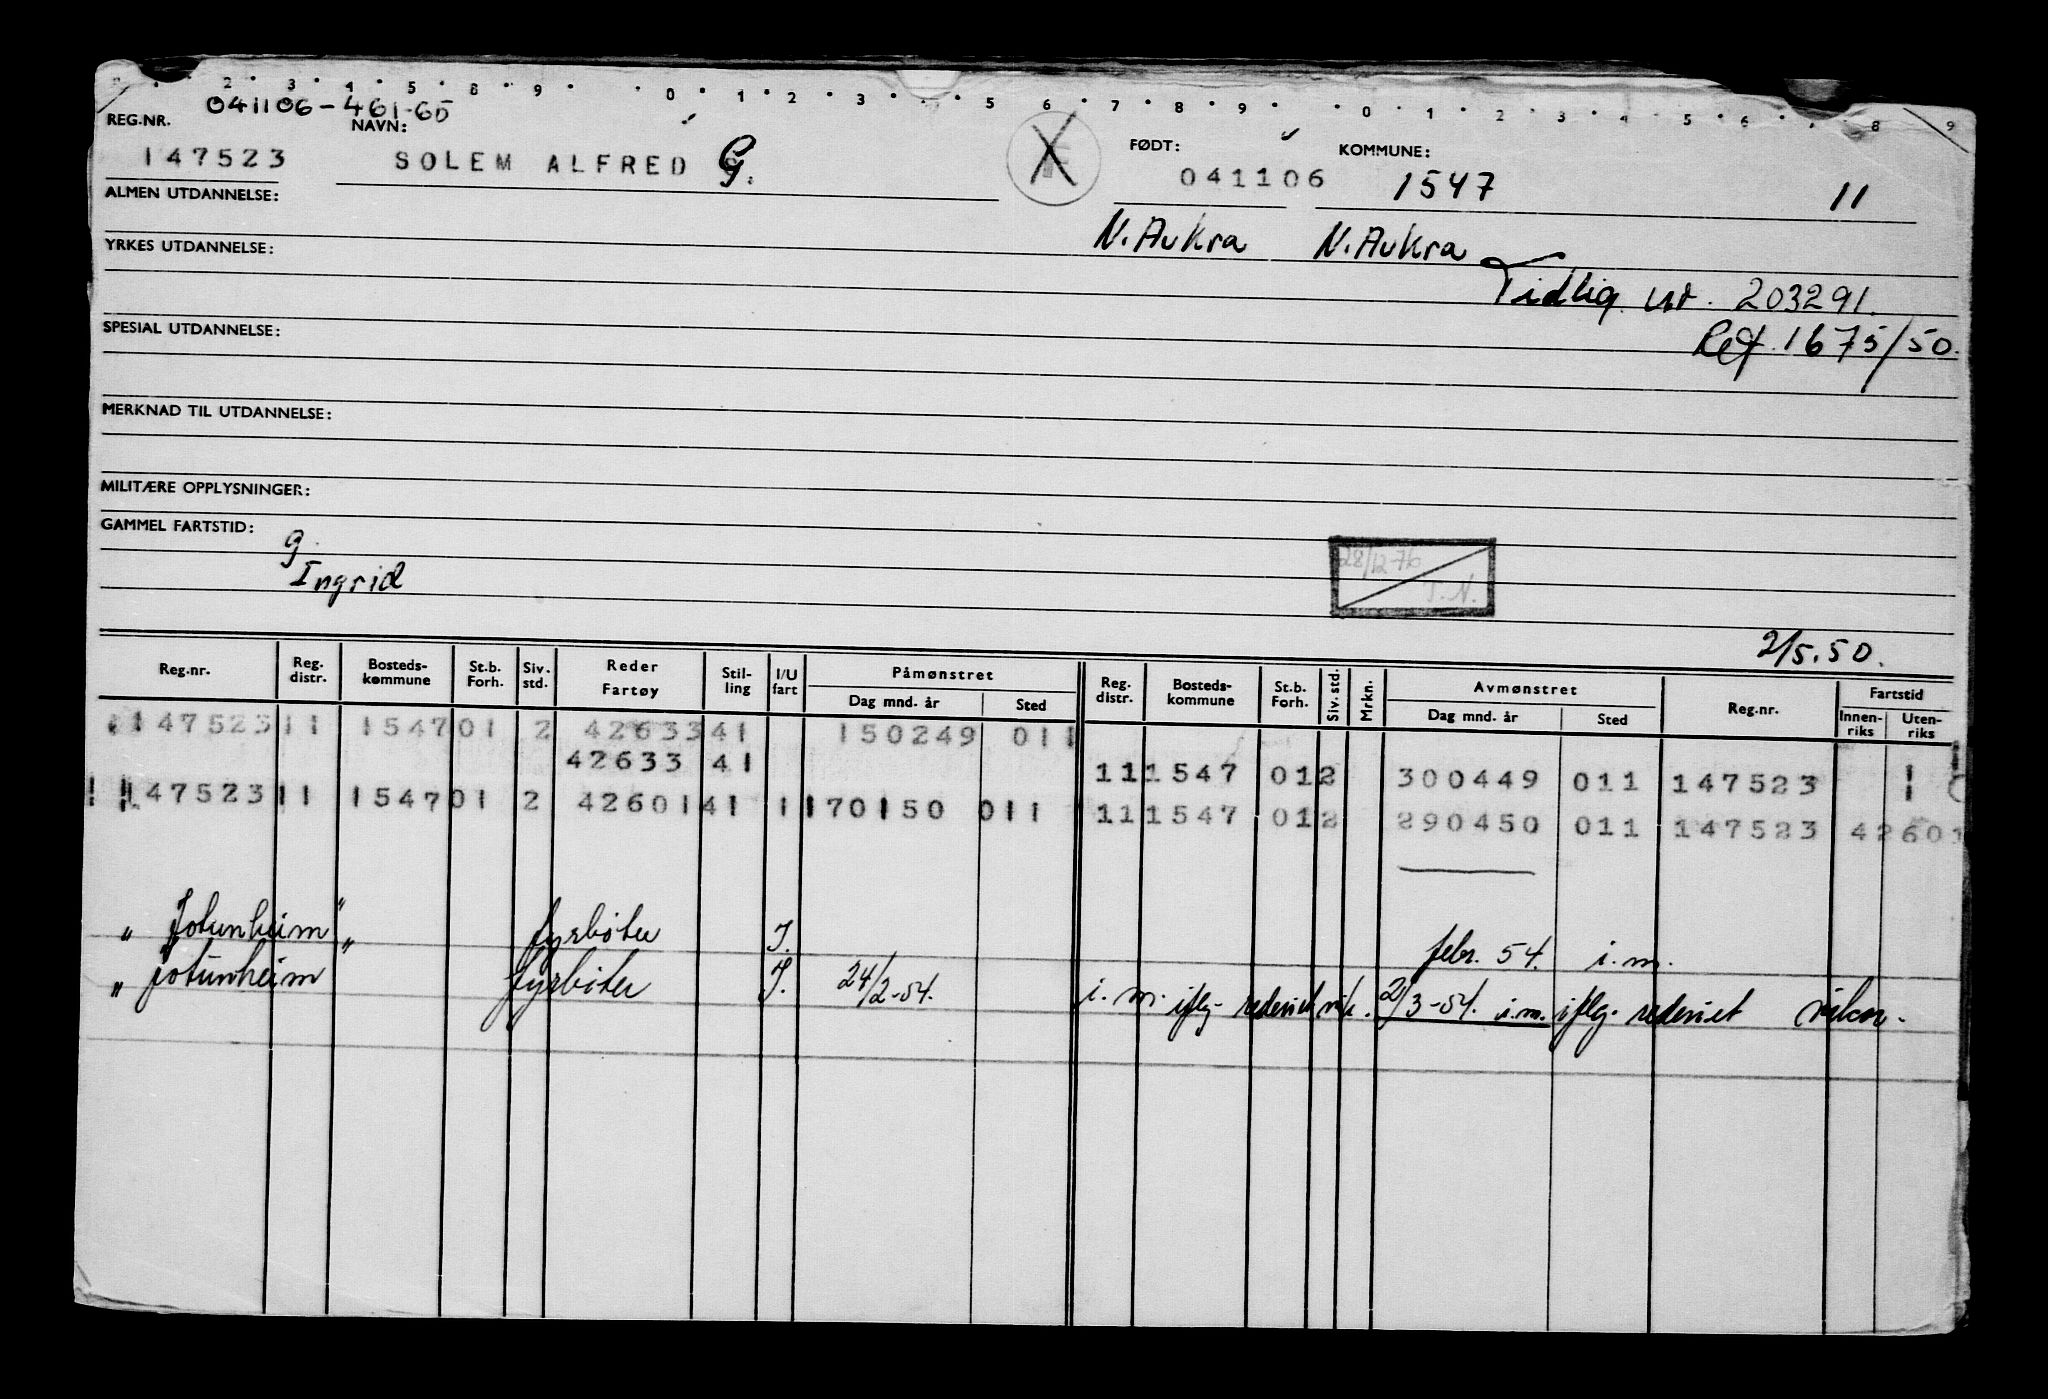 2 3 4 5 8 9 0 1 2 3 5 6 7 8 9 0 1 2 3 4 5 6 7 8 9
041106-461-65
REG.NR. NAVN: FØDT: KOMMUNE:
147523 SOLEM ALFRED G. 041106 1547 11
ALMEN UTDANNELSE:
N. Aukra N. Aukra
YRKES UTDANNELSE:
Tidlig. nr. 203291.
SPESIAL UTDANNELSE:
Ref. 1675/50.
MERKNAD TIL UTDANNELSE:
MILITÆRE OPPLYSNINGER:
GAMMEL FARTSTID:
g.
Ingrid
28/12-76
T.N.
2/5.50.
Reg.nr. Reg. distr. Bosteds-kommune St.b. Forh. Siv. std. Reder Fartøy Stil-ling I/U fart Påmønstret Dag mnd. år Sted Reg. distr. Bosteds-kommune St.b. Forh. Siv. std. Mrkn. Avmønstret Dag mnd. år Sted Reg.nr. Fartstid Innen-riks Uten-riks
147523 11 1547 01 2 42633 41 150249 011
42633 41 11 1547 01 2 300449 011 147523
147523 11 1547 01 2 42601 41 1 170150 011 11 1547 01 2 290450 011 147523 42601
"Jotunheim" fyrbøter I. febr. 54. i.m.
"Jotunheim" fyrbøter I. 24/2-54. i. m. iflg. rederiet 2/3-54. i.m. iflg. rederiet